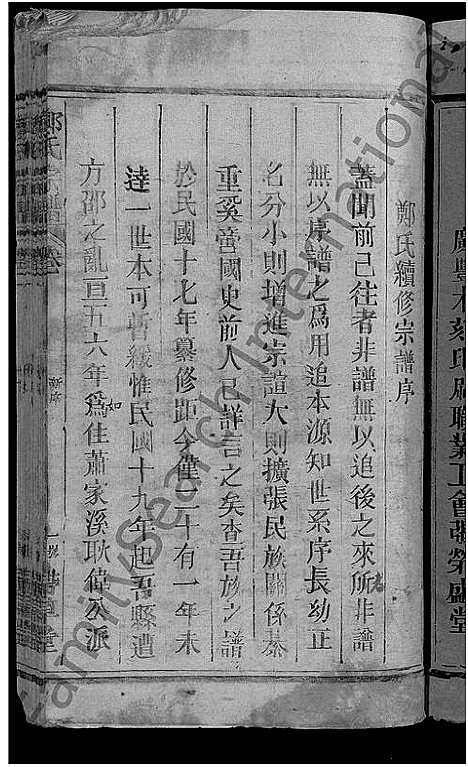 廣豐木刻印刷職業工會張榮盛堂
鄭氏續修宗譜序
蓋聞前已往者非譜無以追後之來所非譜
無以序譜之爲用追本源知世系序長幼正
名分小則增進宗誼大則擴張民族關係綦
重奚啻國史前人已詳言之矣查吾族之譜
於民國十七年纂修距今僅二十有一年未
逹一世本可暫緩惟民國十九年起吾縣遭
方邵之亂亘五六年爲如住蕭家溪耿偉公派
鄭氏宗譜 卷 新序 一 堂
FamilySearch International